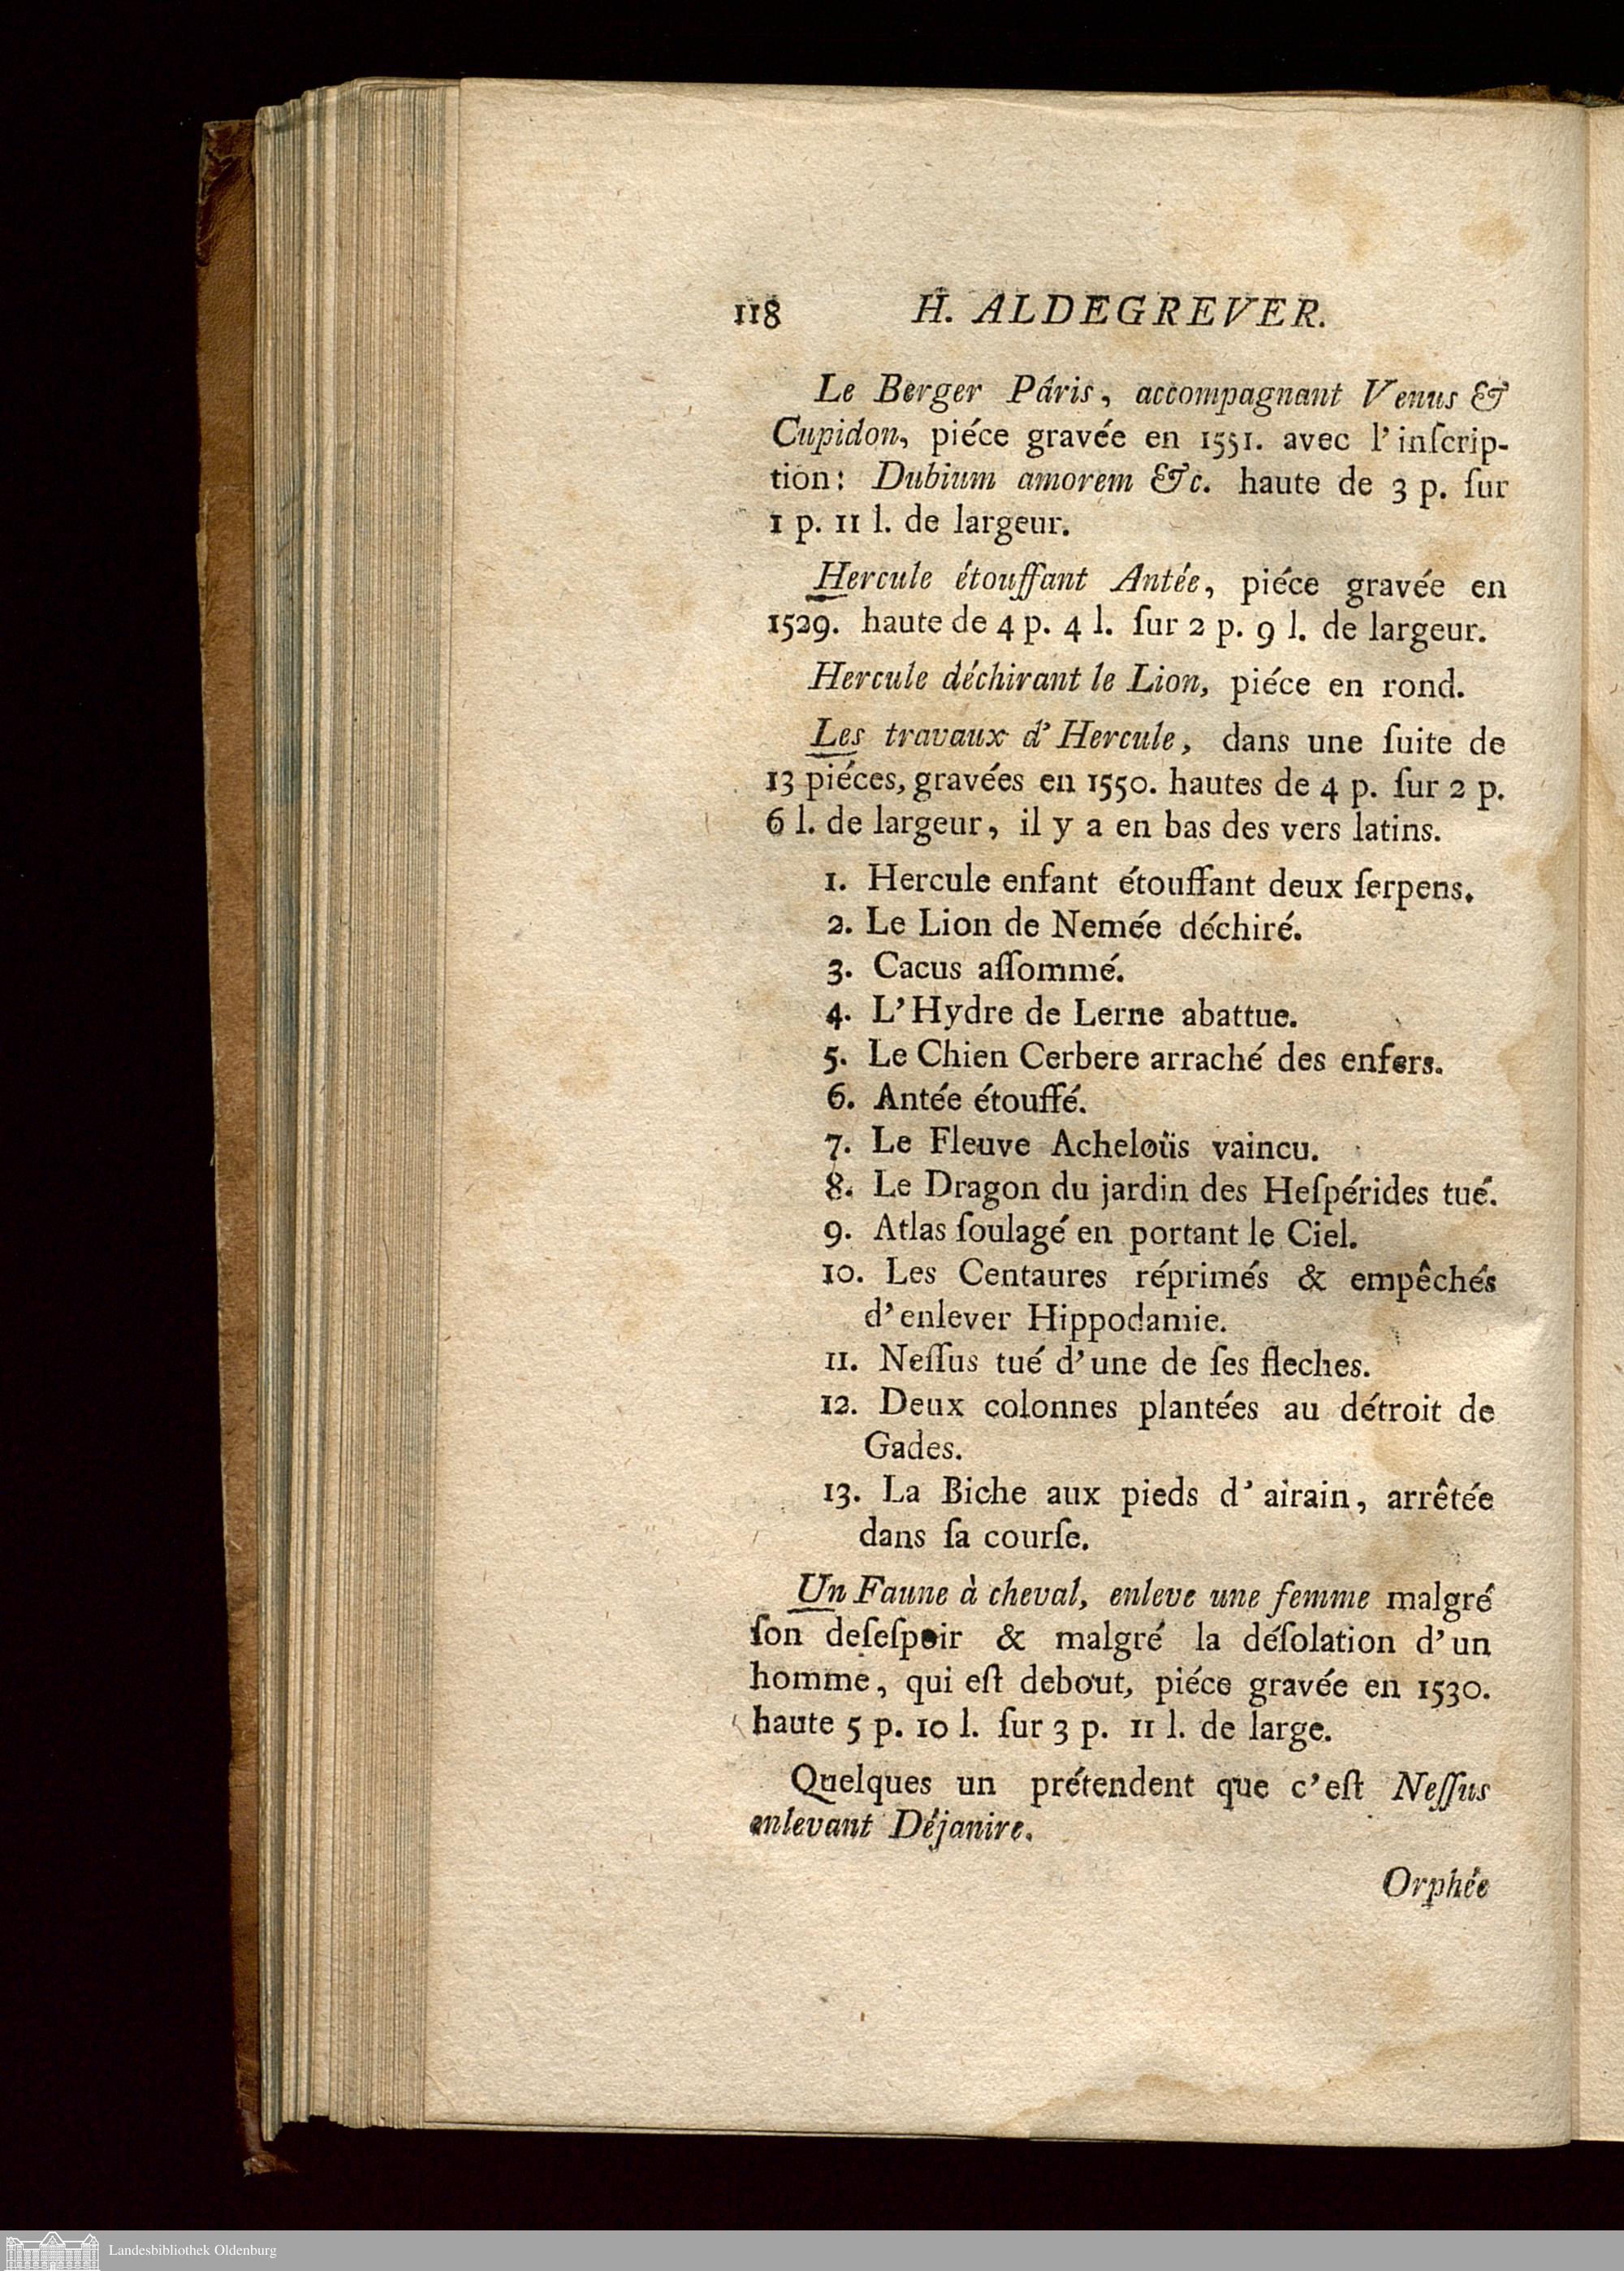 118 H. ALDEGREVER.
Le Berger Pâris, accompagnant Venus &
Cupidon, piéce gravée en 1551. avec l'inſcrip-
tion: Dubium amorem &c. haute de 3 p. ſur
1 p. 11 l. de largeur.
Hercule étouffant Antée, piéce gravée en
1529. haute de 4 p. 4 l. ſur 2 p. 9 l. de largeur.
Hercule déchirant le Lion, piéce en rond.
Les travaux d'Hercule, dans une ſuite de
13 piéces, gravées en 1550. hautes de 4 p. ſur 2 p.
6 l. de largeur, il y a en bas des vers latins.
1. Hercule enfant étouffant deux ſerpens.
2. Le Lion de Nemée déchiré.
3. Cacus aſſommé.
4. L'Hydre de Lerne abattue.
5. Le Chien Cerbere arraché des enfers.
6. Antée étouffé.
7. Le Fleuve Acheloüs vaincu.
8. Le Dragon du jardin des Heſpérides tué.
9. Atlas ſoulagé en portant le Ciel.
10. Les Centaures réprimés & empêchés
d'enlever Hippodamie.
11. Neſſus tué d'une de ſes fleches.
12. Deux colonnes plantées au détroit de
Gades.
13. La Biche aux pieds d'airain, arrêtée
dans ſa courſe.
Un Faune à cheval, enleve une femme malgré
ſon deſeſpoir & malgré la déſolation d'un
homme, qui eſt debout, piéce gravée en 1530.
haute 5 p. 10 l. ſur 3 p. 11 l. de large.
Quelques un prétendent que c'eſt Neſſus
enlevant Déjanire.
Orphée
Landesbibliothek Oldenburg